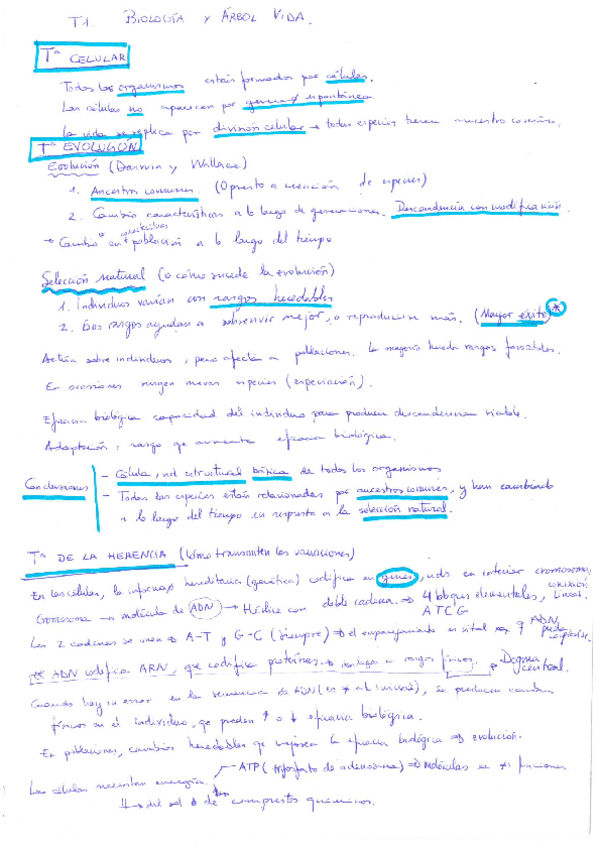 T1. BIOLOGÍA Y ÁRBOL VIDA.
Tª CELULAR
Todos los organismos están formados por células.
Las células no aparecen por generaº espontánea
La vida se replica por división celular → todas especies tienen ancestro común.
Tª EVOLUCIÓN
Evolución (Darwin y Wallace)
1. Ancestros comunes. (Opuesto a creación de especies)
2. Cambio características a lo largo de generaciones. Descendencia con modificación.
→ Cambio en población a lo largo del tiempo
Selección natural (o cómo sucede la evolución)
1. Individuos varían con rasgos heredables
2. Esos rasgos ayudan a sobrevivir mejor, o reproducirse más. (Mayor éxito) *
Actúa sobre individuos, pero afecta a poblaciones. La mayoría hereda rasgos favorables.
En ocasiones surgen nuevas especies (especiación).
Eficacia biológica capacidad del individuo para producir descendencia viable.
Adaptación: rasgo qe aumenta eficacia biológica.
Conclusiones
- Célula, ud estructural básica de todos los organismos
- Todas las especies están relacionadas por ancestros comunes, y han cambiado
a lo largo del tiempo en respuesta a la selección natural.
Tª DE LA HERENCIA (Cómo transmiten las variaciones)
En las células, la informaº hereditaria (genética) codifica en genes, uds en interior cromosomas
Cromosoma → molécula de ADN → Hélice con doble cadena ⇒ 4 bloques elementales,
A T C G
Las 2 cadenas se unen ⇒ A-T y G-C (siempre) ⇒ el emparejamiento es vital ADN pueda replicarse.
* ADN codifica ARN, que codifica proteínas. ⇒ rasgos físicos. Dogma central.
Cuando hay un error en la secuencia de ADN se producen cambios
físicos en el individuo, qe pueden ↑ o ↓ eficacia biológica.
En poblaciones, cambios heredables qe mejoren la eficacia biológica ⇒ evolución.
Las células necesitan energía. ATP (trifosfato de adenosina) ⇒ moléculas funciones
del sol o de compuestos químicos.